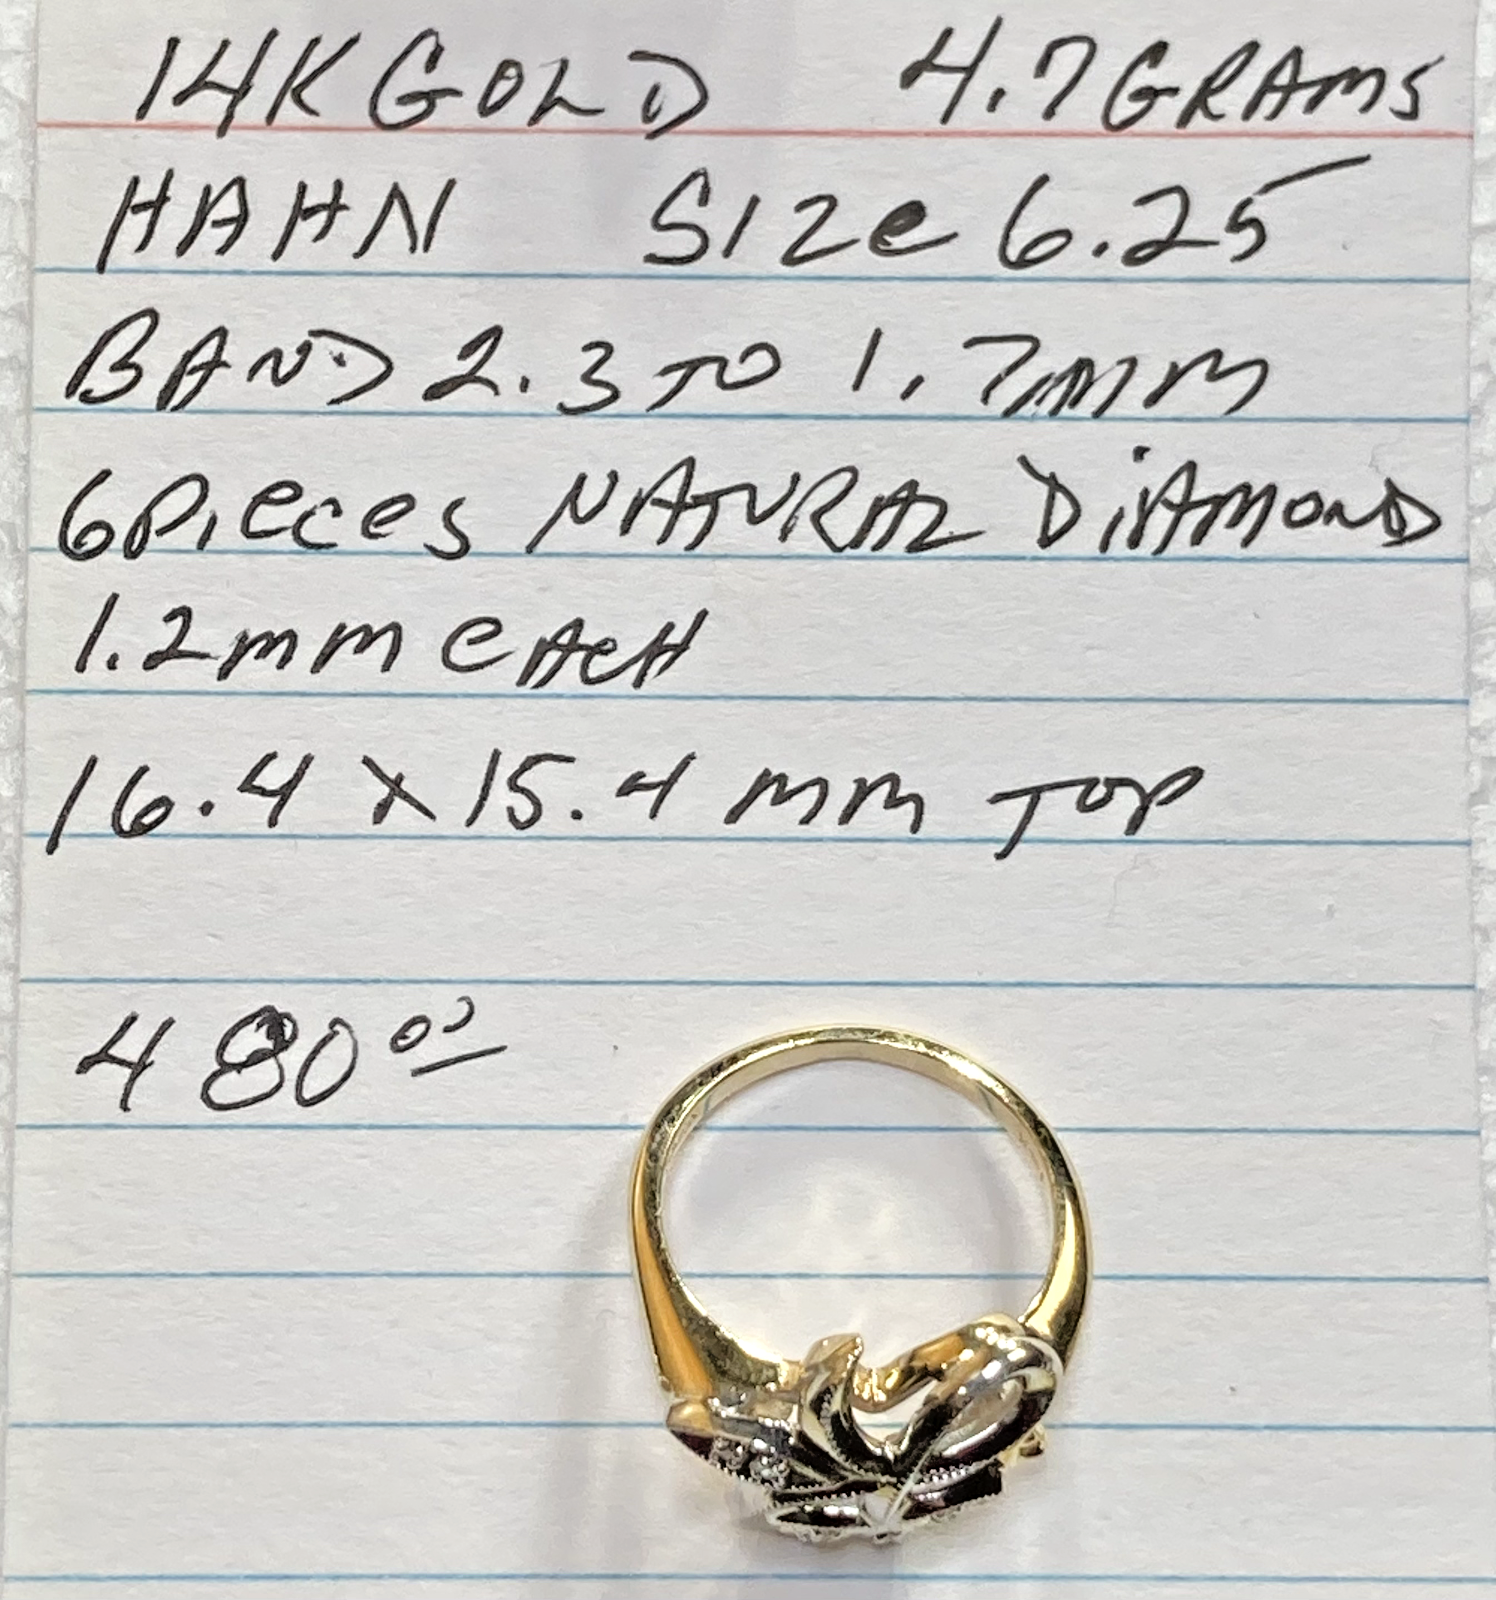 14K GOLD 4.7 GRAMS
HAHN SIZe 6.25
BAND 2.3 TO 1.7mm
6 PieceS NATURAL DiAMOND
1.2mm eAcH
16.4 X 15.4 mm TOP
480 00